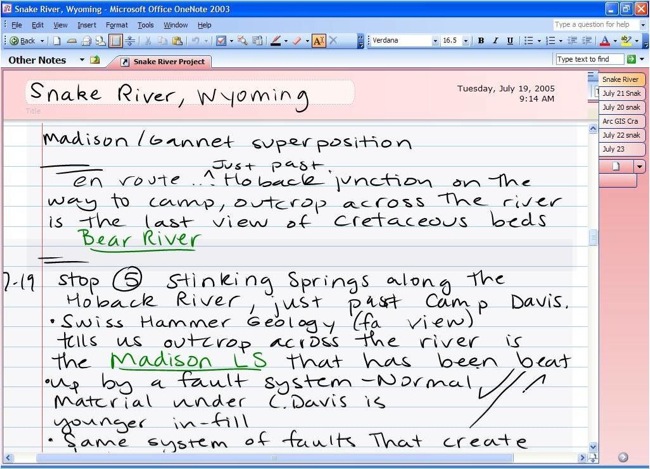 Snake River, Wyoming - Microsoft Office OneNote 2003
File Edit View Insert Format Tools Table Window Help Type a question for help
Back Verdana 16.5 B I U
Other Notes Snake River Project Type text to find
Snake River, Wyoming
Tuesday, July 19, 2005
9:14 AM
Title
Snake River
July 21 Snak
July 20 snak
Arc GIS Cra
July 22 snak
July 23
Madison/Gannet superposition
Just past
en route ..^ Hoback junction on the
way to camp, outcrop across the river
is the last view of Cretaceous beds
Bear River
7-19 stop 5 Stinking Springs along the
Hoback River, just past Camp Davis.
• Swiss Hammer Geology (fa view)
tells us outcrop across the river is
the Madison LS that has been beat
• up by a fault system - Normal
Material under C. Davis is
younger in-fill
• Same system of faults That create